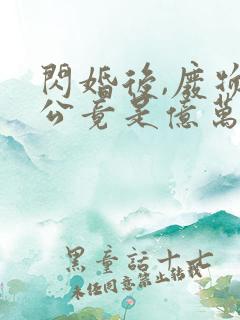 閃婚後,廢物
公竟是億萬
黑童話十七
未经同意禁止转载